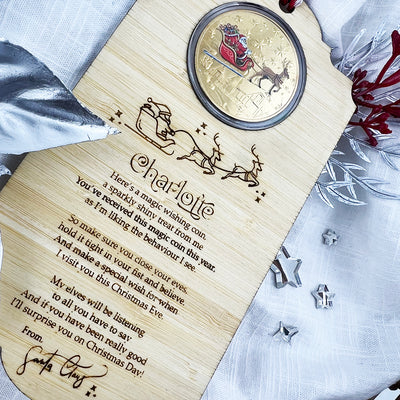 Charlotte
Here's a magic wishing coin,
a sparkly shiny treat from me
You've received this magic coin this year,
as I'm liking the behaviour I see.
So make sure you close your eyes,
hold it tight in your fist and believe.
And make a special wish for when
I visit you this Christmas Eve.
My elves will be listening
to all you have to say
And if you have been really good
I'll surprise you on Christmas Day!
From,
Santa Claus